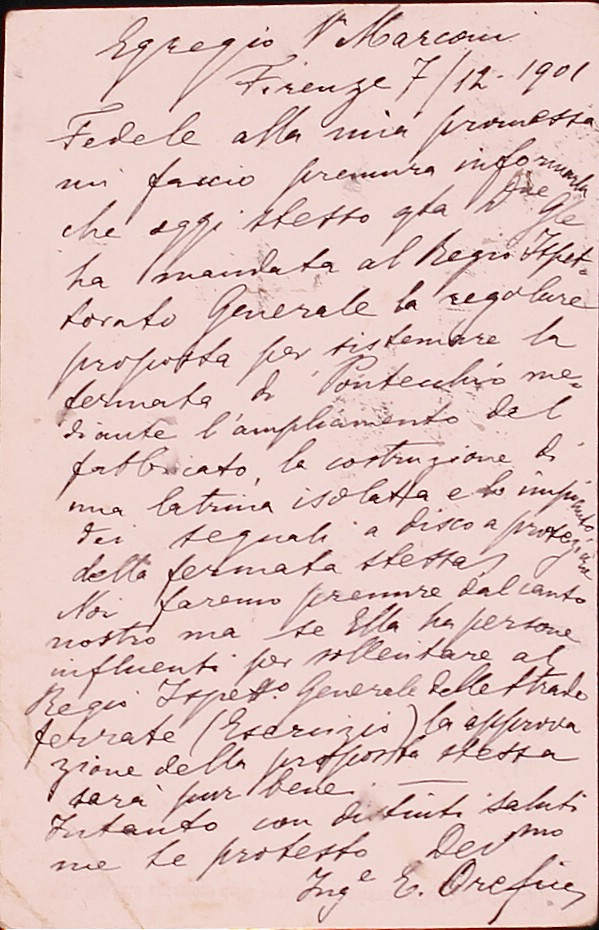 Egregio Sr Marconi
Firenze 7/12-1901
Fedele alla mia promessa
mi faccio premura informarla
che oggi stesso qta Dne Gle
ha mandata al Regio Ispet-
torato Generale la regolare
proposta per sistemare la
fermata di Pontecchio me-
diante l'ampliamento del
fabbricato, la costruzione di
una latrina isolata e lo impianto
dei segnali a disco a protezione
della fermata stessa
Noi faremo premure dal canto
nostro ma se Ella ha persone
influenti per sollecitare al
Regio Ispetto Generale delle Strade
ferrate (Esercizio) la approva
zione della proposta stessa
sarà pur bene. —
Intanto con distinti saluti
me le protesto Devmo
Inge E. Orefice